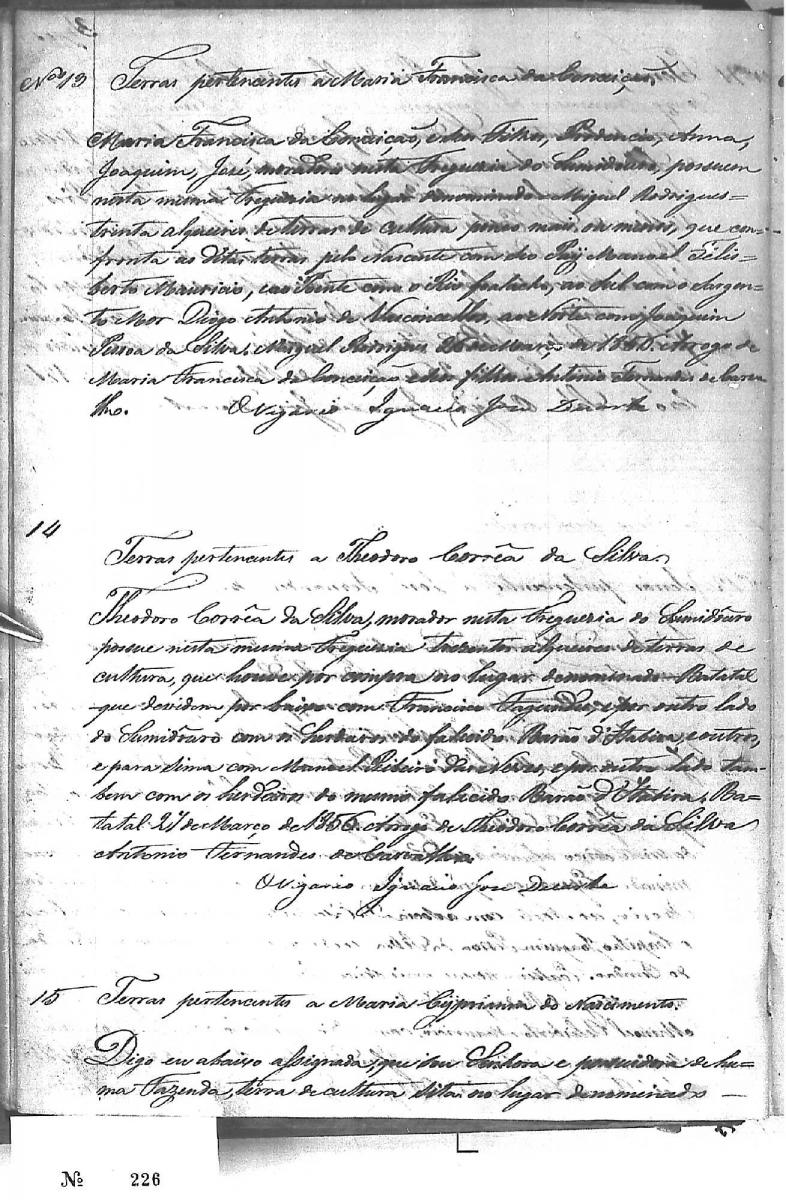 Nos 13 Terras pertencentes a Maria Francisca da Conceição
Maria Francisca da Conceicão, e seus Filhos, Prudencio, Anna,
Joaquim, José, moradores nesta Freguezia do Sumidouro, possuem
nesta mesma Freguezia no lugar denominado Miguel Rodrigues
trinta alqueires de terras de cultura pouco mais, ou menos, que con-
fronta as ditas terras pelo Nascente com Manoel Felis-
berto Mauricio, e ao Poente com o Rio, ao Sul com o Sargen-
to Mor Diogo Antonio de Vasconcellos, ao Norte com Joaquim
Pessoa da Silva. Miguel Rodrigues de Março de 1856. Arogo de
Maria Francisca da Conceição e seus filhos Antonio Fernandes de Carva
lho. O Vigario Ignacio José Duarte
14
Terras pertencentes a Theodoro Corrêa da Silva
Theodoro Corrêa da Silva, morador nesta Freguezia do Sumidouro
possue nesta mesma Freguezia alqueires de terras de
cultura, que houve por compra no lugar denominado Batatal
que devidem por baixo com Francisco Fagundes, e por outro lado
do Sumidouro com os herdeiros do falecido Barão d'Itabira, e outros,
e para sima com Manoel Ribeiro das Neves, e por outro lado tam-
bem com os herdeiros do mesmo falecido Barão d'Itabira. Ba-
tatal 27 de Março de 1856. Arogo de Theodoro Corrêa da Silva
Antonio Fernandes de Carvalho.
O Vigario Ignacio José Duarte
15 Terras pertencentes a Maria Cypriana do Nascimento.
Digo eu abaixo assignada, que sou Senhora e possuidora de hu-
ma Fazenda, terra de cultura sita no lugar denominado
Nº 226